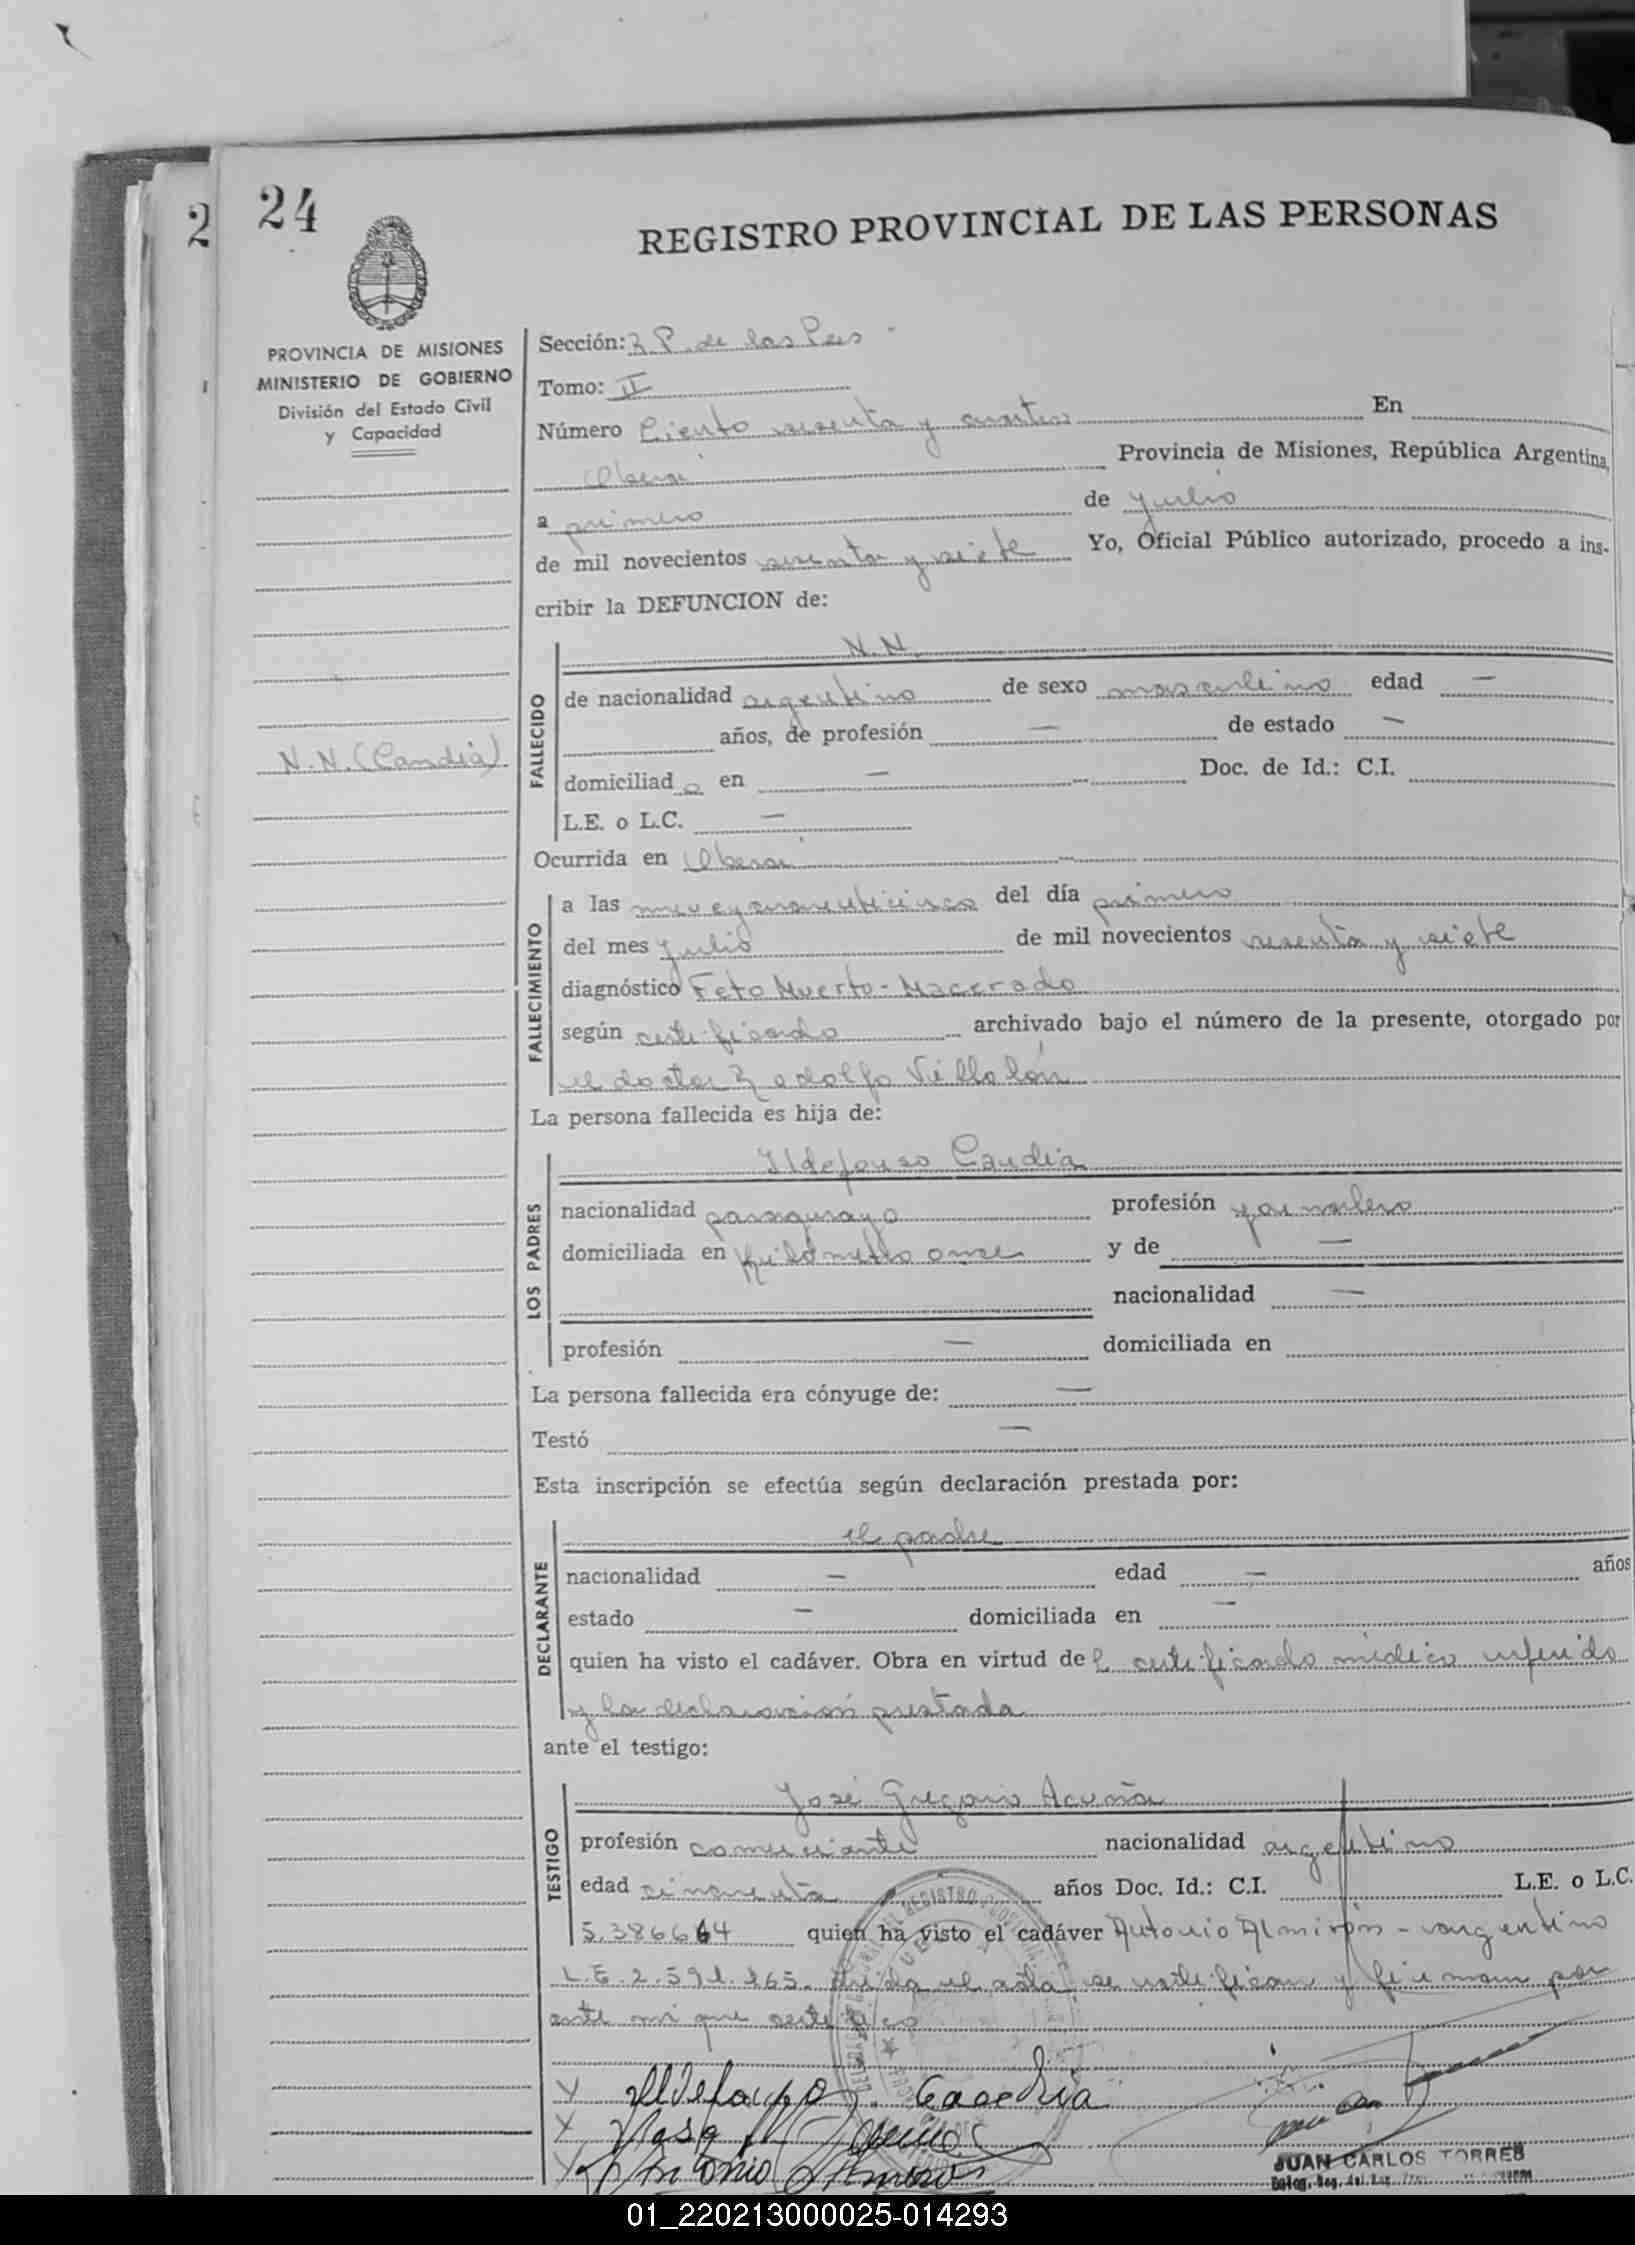 2
24
REGISTRO PROVINCIAL DE LAS PERSONAS
PROVINCIA DE MISIONES
MINISTERIO DE GOBIERNO
División del Estado Civil
y Capacidad
N.N. (Candia)
Sección: R. P. de las Pers
Tomo: II
Número Ciento sesenta y cuatro En
Oberá Provincia de Misiones, República Argentina,
a primero de Julio
de mil novecientos sesenta y siete Yo, Oficial Público autorizado, procedo a ins-
cribir la DEFUNCION de:
FALLECIDO
N.N.
de nacionalidad argentino de sexo masculino edad —
años, de profesión — de estado —
domiciliad o en — Doc. de Id.: C.I.
L.E. o L.C. —
Ocurrida en Oberá
FALLECIMIENTO
a las nueve y cuarenticinco del día primero
del mes Julio de mil novecientos sesenta y siete
diagnóstico Feto Muerto - Macerado
según certificado archivado bajo el número de la presente, otorgado por
el doctor Rodolfo Villalón
La persona fallecida es hija de:
LOS PADRES
Ildefonso Candia
nacionalidad paraguayo profesión jornalero
domiciliada en Kilómetro once y de —
nacionalidad —
profesión — domiciliada en
La persona fallecida era cónyuge de: —
Testó —
Esta inscripción se efectúa según declaración prestada por:
DECLARANTE
el padre
nacionalidad — edad — años
estado — domiciliada en —
quien ha visto el cadáver. Obra en virtud de l certificado médico referido
y la declaración prestada
ante el testigo:
TESTIGO
José Gregorio Acuña
profesión comerciante nacionalidad argentino
edad cincuenta años Doc. Id.: C.I. L.E. o L.C.
5.386.664 quien ha visto el cadáver Antonio Almirón - argentino
L.E. 2.591.165. leída el acta se ratifican y firman por
ante mí que certifico
Ildefonso Candia
Antonio Almiron
JUAN CARLOS TORRES
01_220213000025-014293